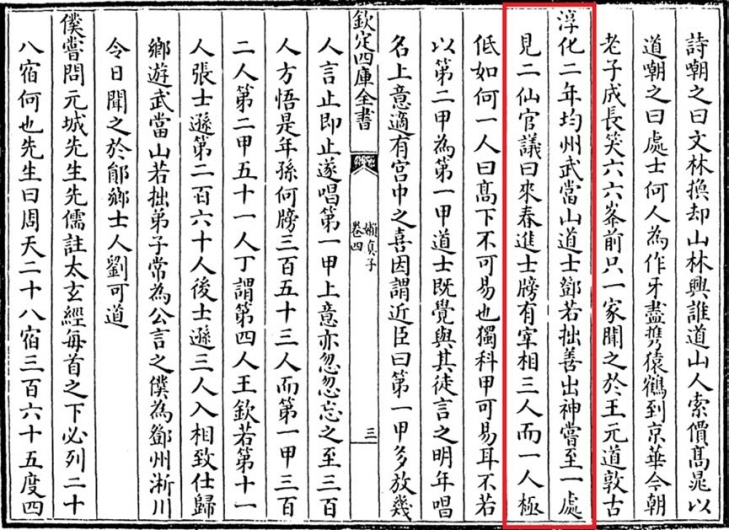 詩嘲之曰文林換却山林興誰道山人索價高晁以
道嘲之曰處士何人為作牙盡携猿鶴到京華今朝
老子成長笑六六峯前只一家聞之於王元道敦古
淳化二年均州武當山道士鄧若拙善出神嘗至一處
見二仙官議曰來春進士牓有宰相三人而一人極
低如何一人曰髙下不可易也獨科甲可易耳不若
以第二甲為第一甲道士既覺與其徒言之明年唱
名上意適有宫中之喜因謂近臣曰第一甲多放幾
欽定四庫全書
嬾真子
卷四
三
人言止即止遂唱第一甲上意亦忽忽忘之至三百
人方悟是年孫何牓三百五十三人而第一甲三百
二人第二甲五十一人丁謂第四人王欽若第十一
人張士遜第二百六十人後士遜三人入相致仕歸
鄉遊武當山若拙弟子常為公言之僕為鄧州淅川
令日聞之於鄖鄉士人劉可道
僕嘗問元城先生先儒註太玄經每首之下必列二十
八宿何也先生曰周天二十八宿三百六十五度四